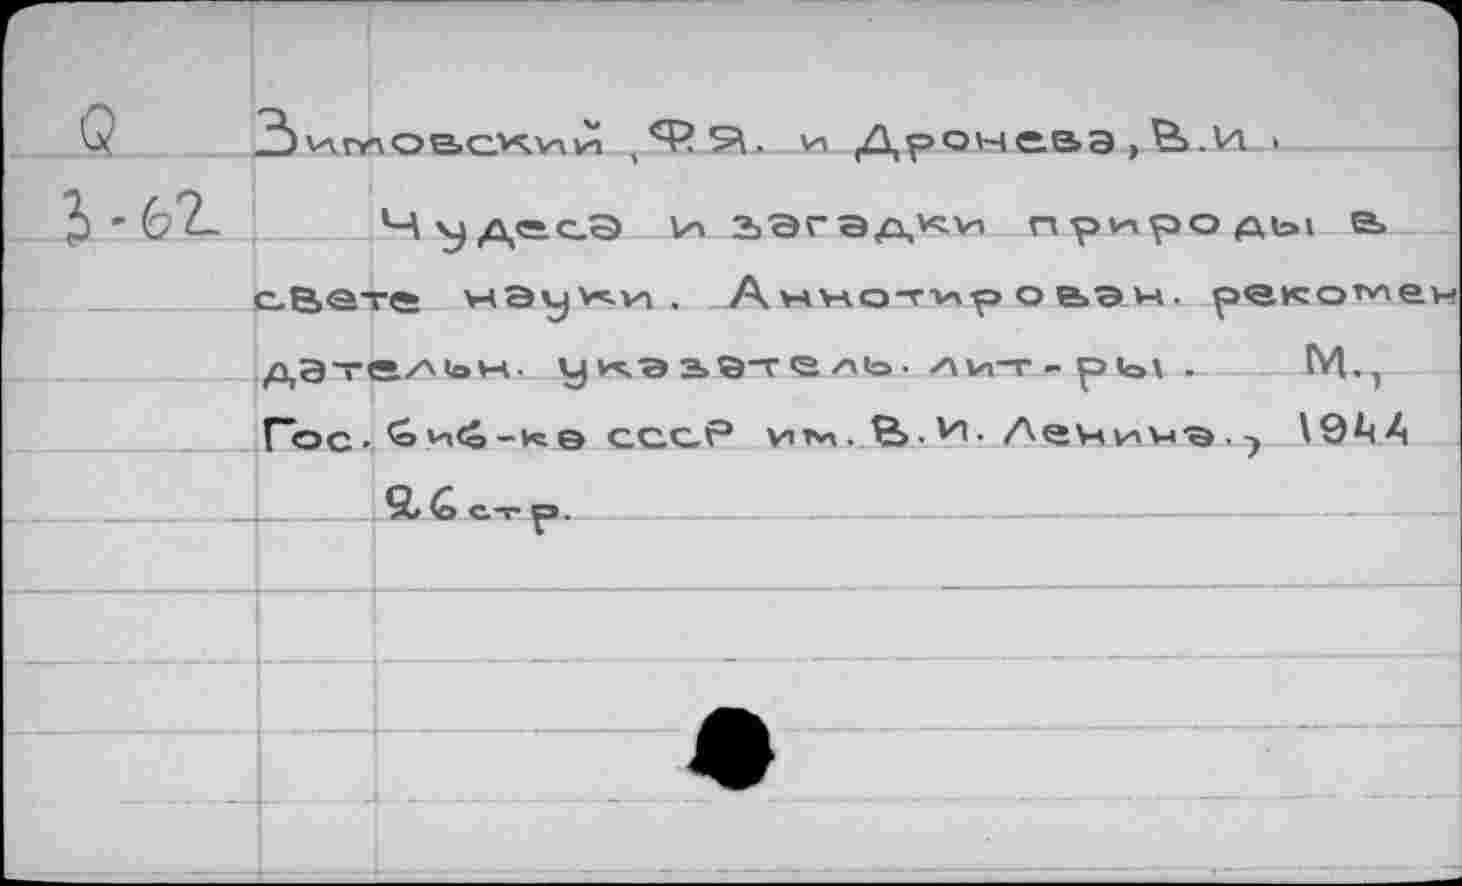 Q Зимовский, Ф.Я. и Дронева, В.И.
З-62 Чудеса и загадки природы в
свете науки. Аннотирован. рекомен
дательн. указатель. лит-ры. М.,
Гос. биб-ка СССР им. В.И. Ленина., 1944
26 стр.